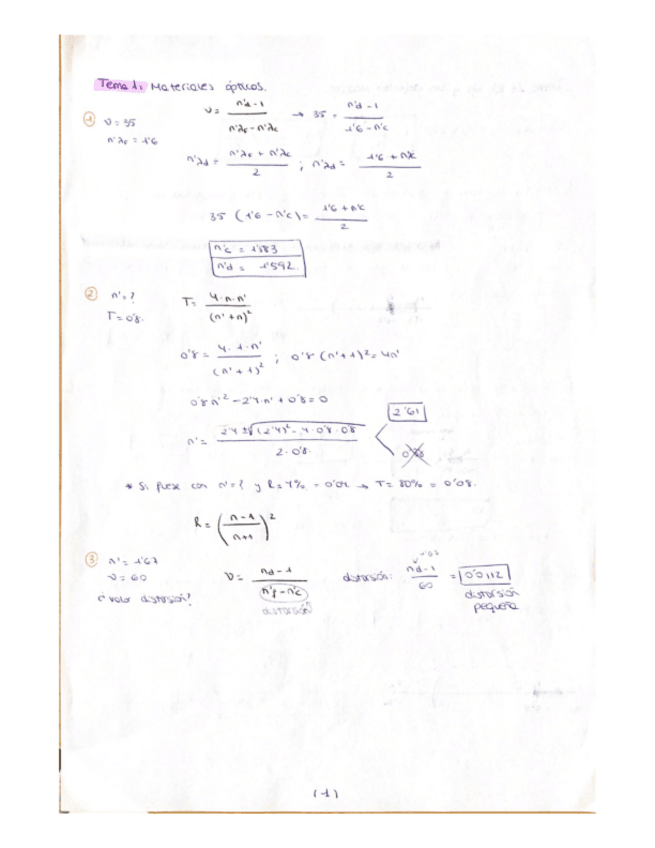 Tema 1: Materiales ópticos.
① ν = 35
n'λF = 1'6
ν = (n'd - 1) / (n'λF - n'λc) → 35 = (n'd - 1) / (1'6 - n'c)
n'λd = (n'λF + n'λc) / 2 ; n'λd = (1'6 + n'λc) / 2
35 (1'6 - n'c) = (1'6 + n'c) / 2
n'c = 1'583
n'd = 1'592
② n' = ?
T = 0'8.
T = 4·n·n' / (n' + n)²
0'8 = 4·1·n' / (n' + 1)² ; 0'8 (n' + 1)² = 4n'
0'8n'² - 2'4·n' + 0'8 = 0
n' = (2'4 ± √(2'4)² - 4·0'8·0'8) / 2·0'8
2'61
0'38
* Si fuese con n' = ? y R = 4% = 0'04 → T = 80% = 0'08.
R = ((n - 1) / (n + 1))²
③ n' = 1'67
ν = 60
¿valor distorsión?
ν = (nd - 1) / (n'f - n'c)
distorsión
distorsión: (n'd - 1) / 60 = 0'0112
1'67
distorsión
pequeña
(-1)